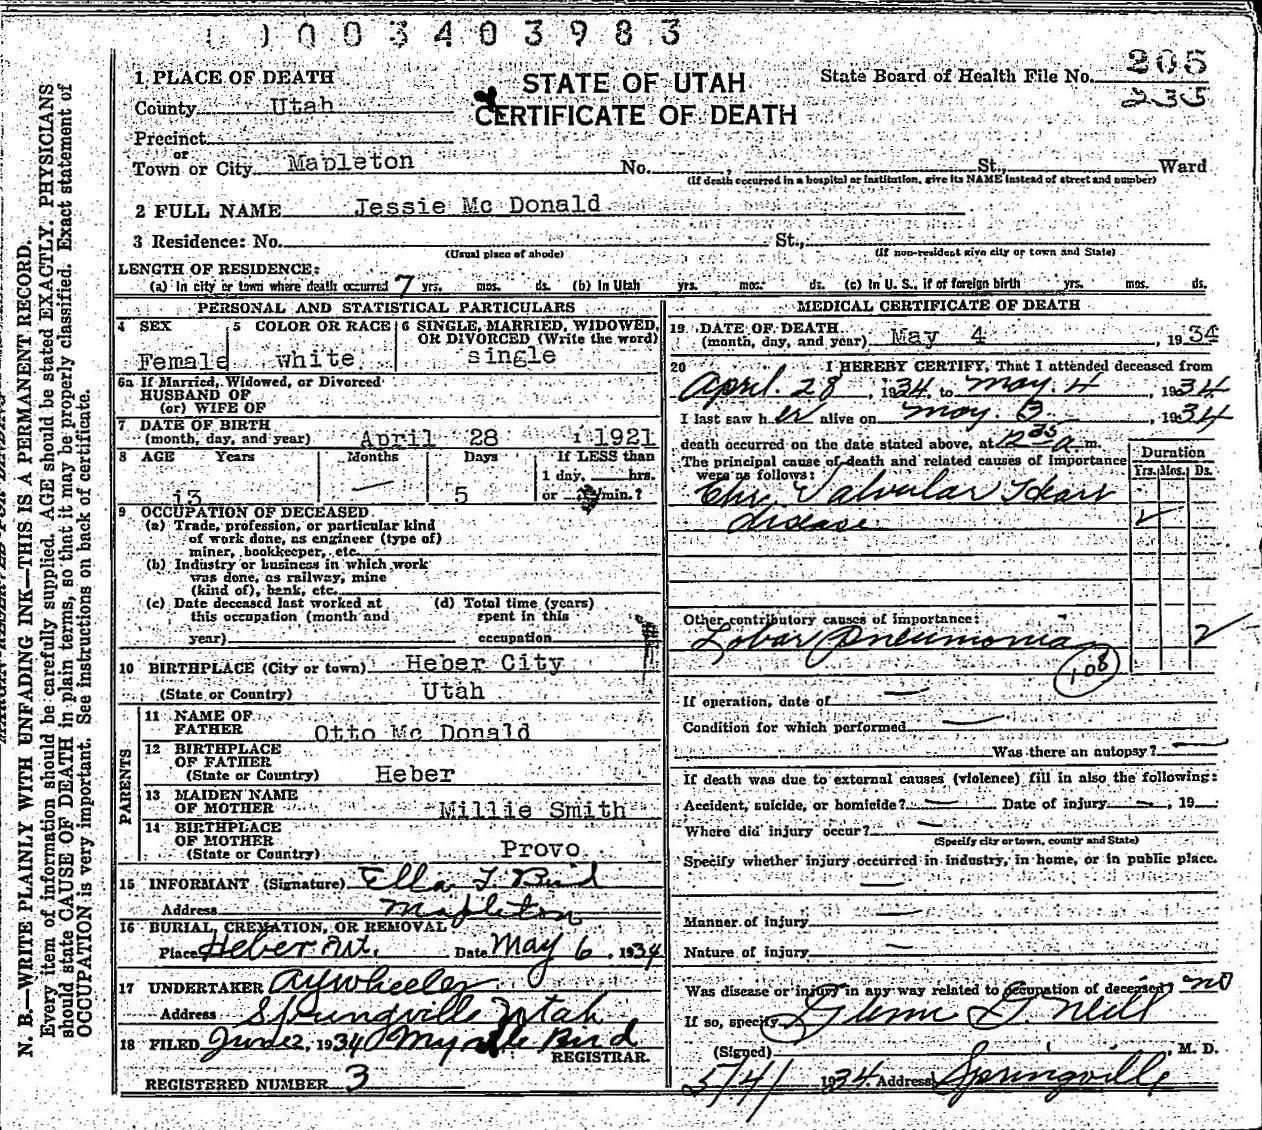 0003403983
1 PLACE OF DEATH
STATE OF UTAH
CERTIFICATE OF DEATH
State Board of Health File No. 205
235
County Utah
Precinct
or
Town or City Mapleton No. , St., Ward
(If death occurred in a hospital or institution, give its NAME instead of street and number)
2 FULL NAME Jessie Mc Donald
3 Residence: No. St.,
(Usual place of abode) (If non-resident give city or town and State)
LENGTH OF RESIDENCE:
(a) In city or town where death occurred 7 yrs. mos. ds. (b) In Utah yrs. mos. ds. (c) In U. S., if of foreign birth yrs. mos. ds.
PERSONAL AND STATISTICAL PARTICULARS
4 SEX Female
5 COLOR OR RACE white
6 SINGLE, MARRIED, WIDOWED,
OR DIVORCED (Write the word)
single
6a If Married, Widowed, or Divorced
HUSBAND OF
(or) WIFE OF
7 DATE OF BIRTH
(month, day, and year) April 28 1921
8 AGE Years Months Days If LESS than
1 day, hrs.
13 — 5 or min.?
9 OCCUPATION OF DECEASED
(a) Trade, profession, or particular kind
of work done, as engineer (type of)
miner, bookkeeper, etc.
(b) Industry or business in which work
was done, as railway, mine
(kind of), bank, etc.
(c) Date deceased last worked at
this occupation (month and
year)
(d) Total time (years)
spent in this
occupation
10 BIRTHPLACE (City or town) Heber City
(State or Country) Utah
PARENTS
11 NAME OF
FATHER Otto Mc Donald
12 BIRTHPLACE
OF FATHER
(State or Country) Heber
13 MAIDEN NAME
OF MOTHER Millie Smith
14 BIRTHPLACE
OF MOTHER
(State or Country) Provo
15 INFORMANT (Signature) Ella T. Bird
Address Mapleton
16 BURIAL, CREMATION, OR REMOVAL
Place Heber Ut. Date May 6, 1934
17 UNDERTAKER A Y Wheeler
Address Springville Utah
18 FILED June 2, 1934 Myrtle Bird
REGISTRAR.
REGISTERED NUMBER 3
MEDICAL CERTIFICATE OF DEATH
19 DATE OF DEATH
(month, day, and year) May 4, 1934
20 I HEREBY CERTIFY, That I attended deceased from
April. 28, 1934, to May. 4, 1934.
I last saw her alive on May. 3, 1934
death occurred on the date stated above, at 12 35 a. m.
The principal cause of death and related causes of importance
were as follows:
Duration
Yrs. Mos. Ds.
Chr. Valvular Heart
disease ✓
Other contributory causes of importance:
Lobar Pneumonia 2
108
If operation, date of —
Condition for which performed —
Was there an autopsy? —
If death was due to external causes (violence) fill in also the following:
Accident, suicide, or homicide? — Date of injury —, 19
Where did injury occur? —
(Specify city or town, county and State)
Specify whether injury occurred in industry, in home, or in public place.
—
Manner of injury —
Nature of injury —
Was disease or injury in any way related to occupation of deceased? no
If so, specify
(Signed) Glenn G. Neill, M. D.
5/4/ 1934 Address Springville
N. B.—WRITE PLAINLY WITH UNFADING INK—THIS IS A PERMANENT RECORD.
Every item of information should be carefully supplied. AGE should be stated EXACTLY. PHYSICIANS
should state CAUSE OF DEATH in plain terms, so that it may be properly classified. Exact statement of
OCCUPATION is very important. See instructions on back of certificate.